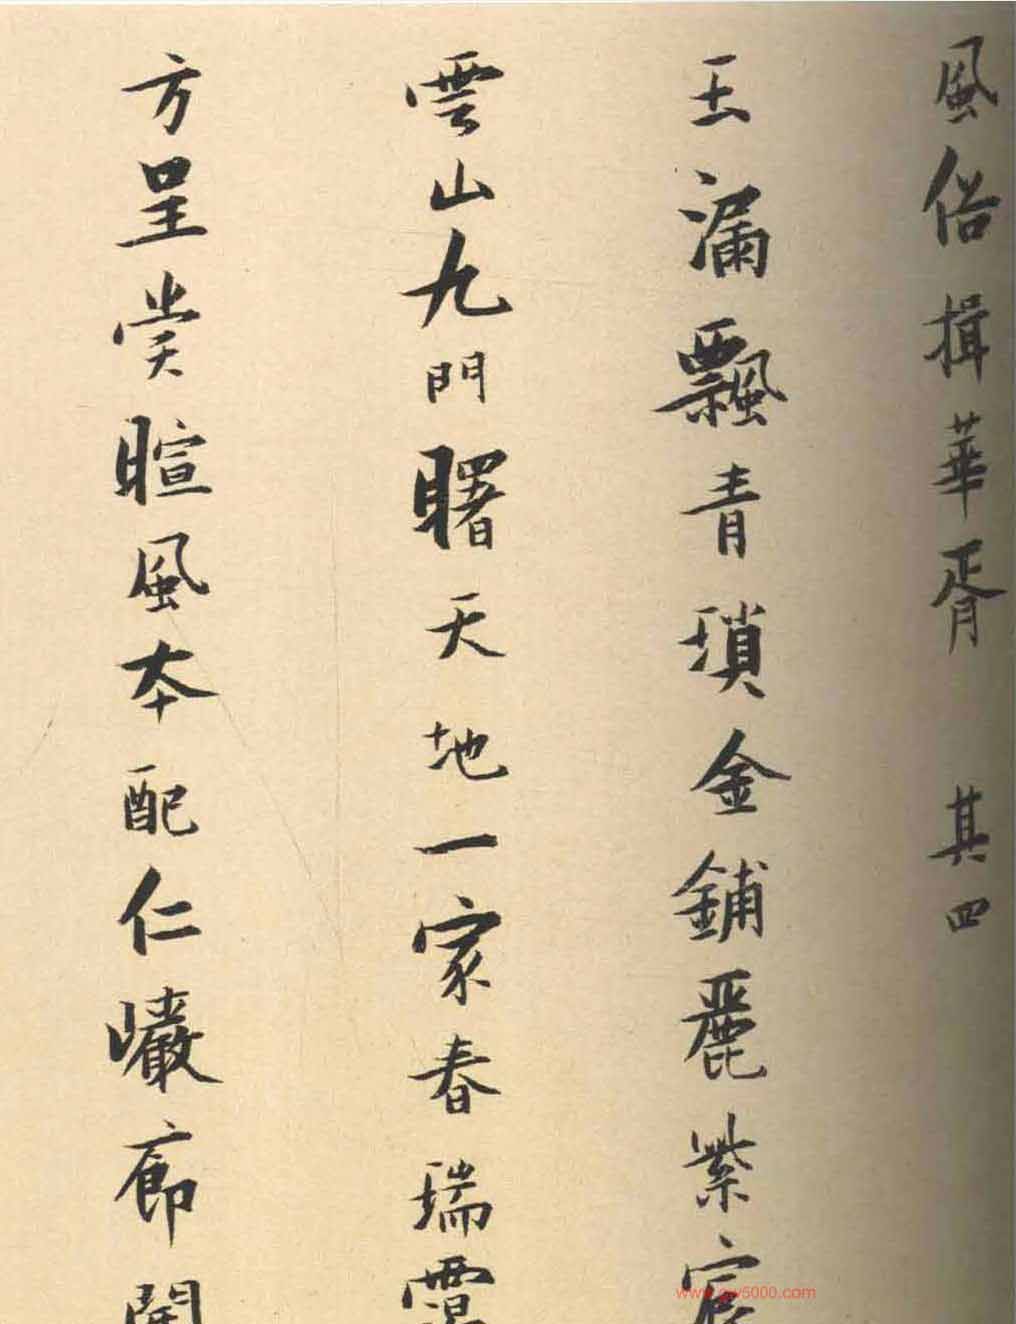 風俗揖華胥 其四
玉漏飄青瑣金鋪麗紫宸
雲山九門曙天地一家春瑞靄
方呈賞暄風本配仁巖廊開